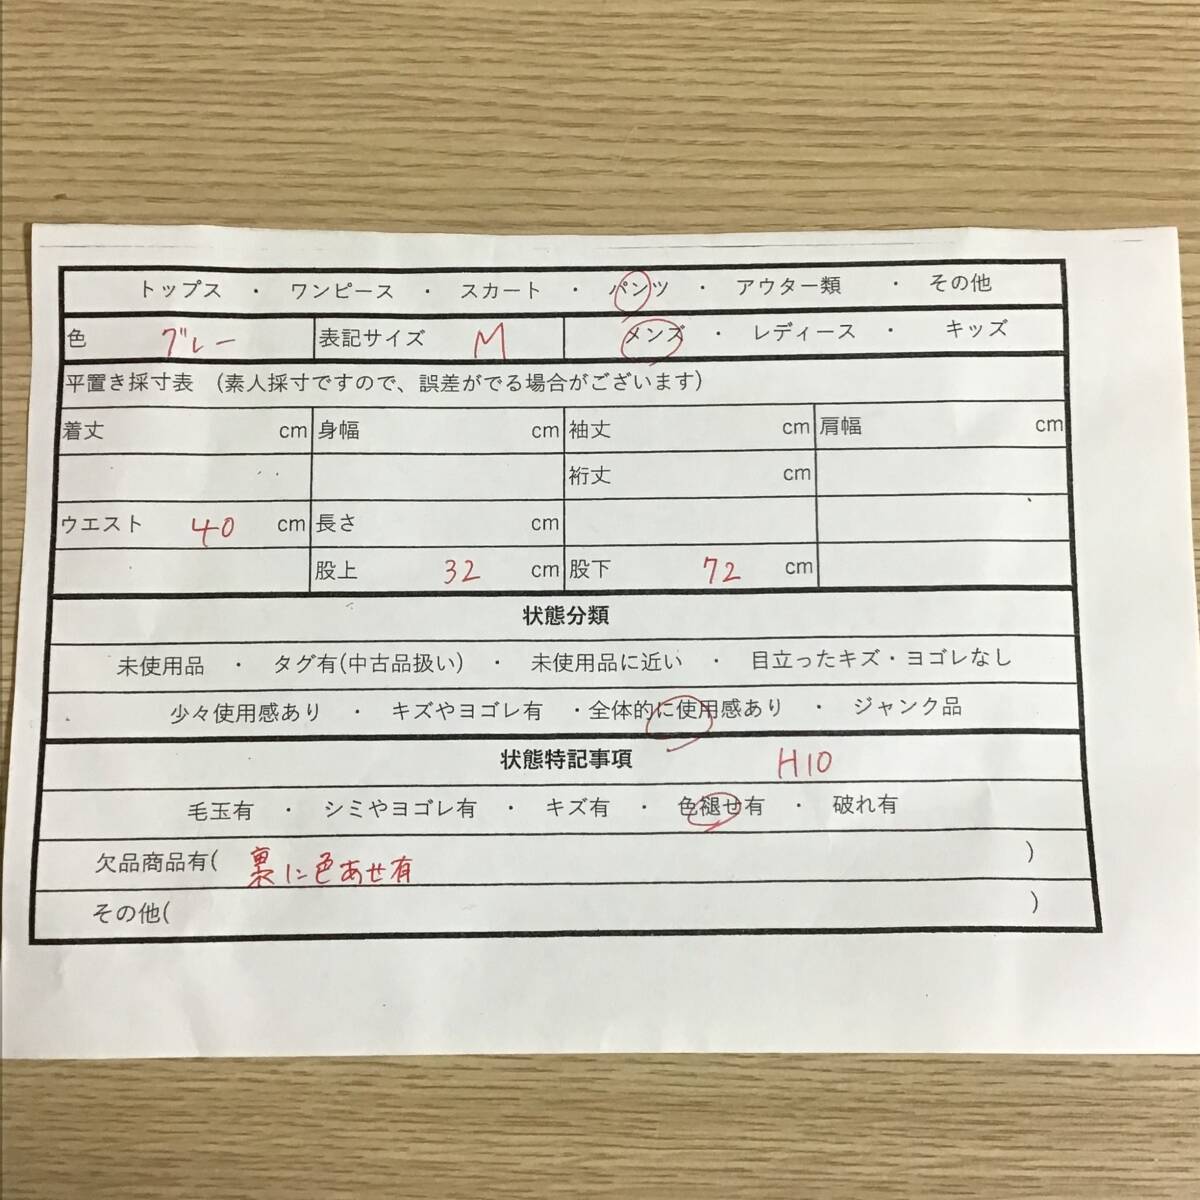 トップス ・ ワンピース ・ スカート ・ パンツ ・ アウター類 ・ その他
色 グレー 表記サイズ M メンズ ・ レディース ・ キッズ
平置き採寸表 (素人採寸ですので、誤差がでる場合がございます)
着丈 cm 身幅 cm 袖丈 cm 肩幅 cm
裄丈 cm
ウエスト 40 cm 長さ cm
股上 32 cm 股下 72 cm
状態分類
未使用品 ・ タグ有(中古品扱い) ・ 未使用品に近い ・ 目立ったキズ・ヨゴレなし
少々使用感あり ・ キズやヨゴレ有 ・全体的に使用感あり ・ ジャンク品
状態特記事項 H10
毛玉有 ・ シミやヨゴレ有 ・ キズ有 ・ 色褪せ有 ・ 破れ有
欠品商品有( 裏に色あせ有 )
その他( )